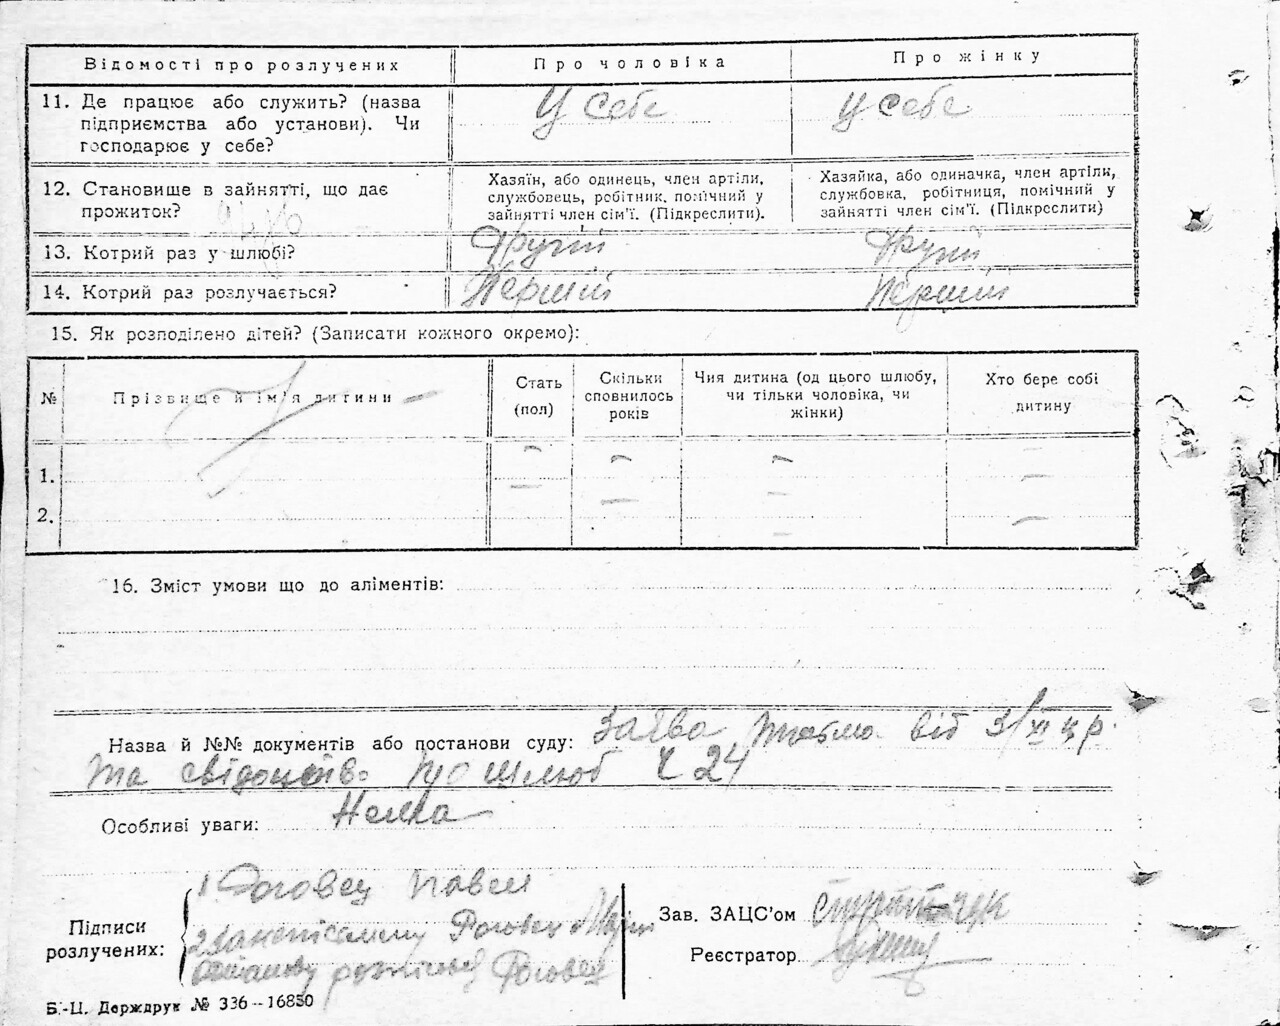 Відомості про розлучених
Про чоловіка
Про жінку
11. Де працює або служить? (назва
підприємства або установи). Чи
господарює у себе?
У себе
у себе
12. Становище в зайнятті, що дає
прожиток?
Хазяїн, або одинець, член артіли,
службовець, робітник, помічний у
зайнятті член сім'ї. (Підкреслити).
Хазяйка, або одиначка, член артіли,
службовка, робітниця, помічний у
зайнятті член сім'ї. (Підкреслити)
13. Котрий раз у шлюбі?
Другий
Другий
14. Котрий раз розлучається?
Перший
Перший
15. Як розподілено дітей? (Записати кожного окремо):
№
Прізвище й ім'я дитини
Стать
(пол)
Скільки
сповнилось
років
Чия дитина (од цього шлюбу,
чи тільки чоловіка, чи
жінки)
Хто бере собі
дитину
1.
2.
16. Зміст умови що до аліментів:
Назва й №№ документів або постанови суду: Заява від 3/XI ц.р.
та свідоцтво про шлюб Ч 24
Особливі уваги: Нема
Підписи
розлучених:
1 Роговец Павел
2 Роговец
Роговец
Зав. ЗАЦС'ом
Реєстратор
Б.-Ц. Держдрук № 336--16850